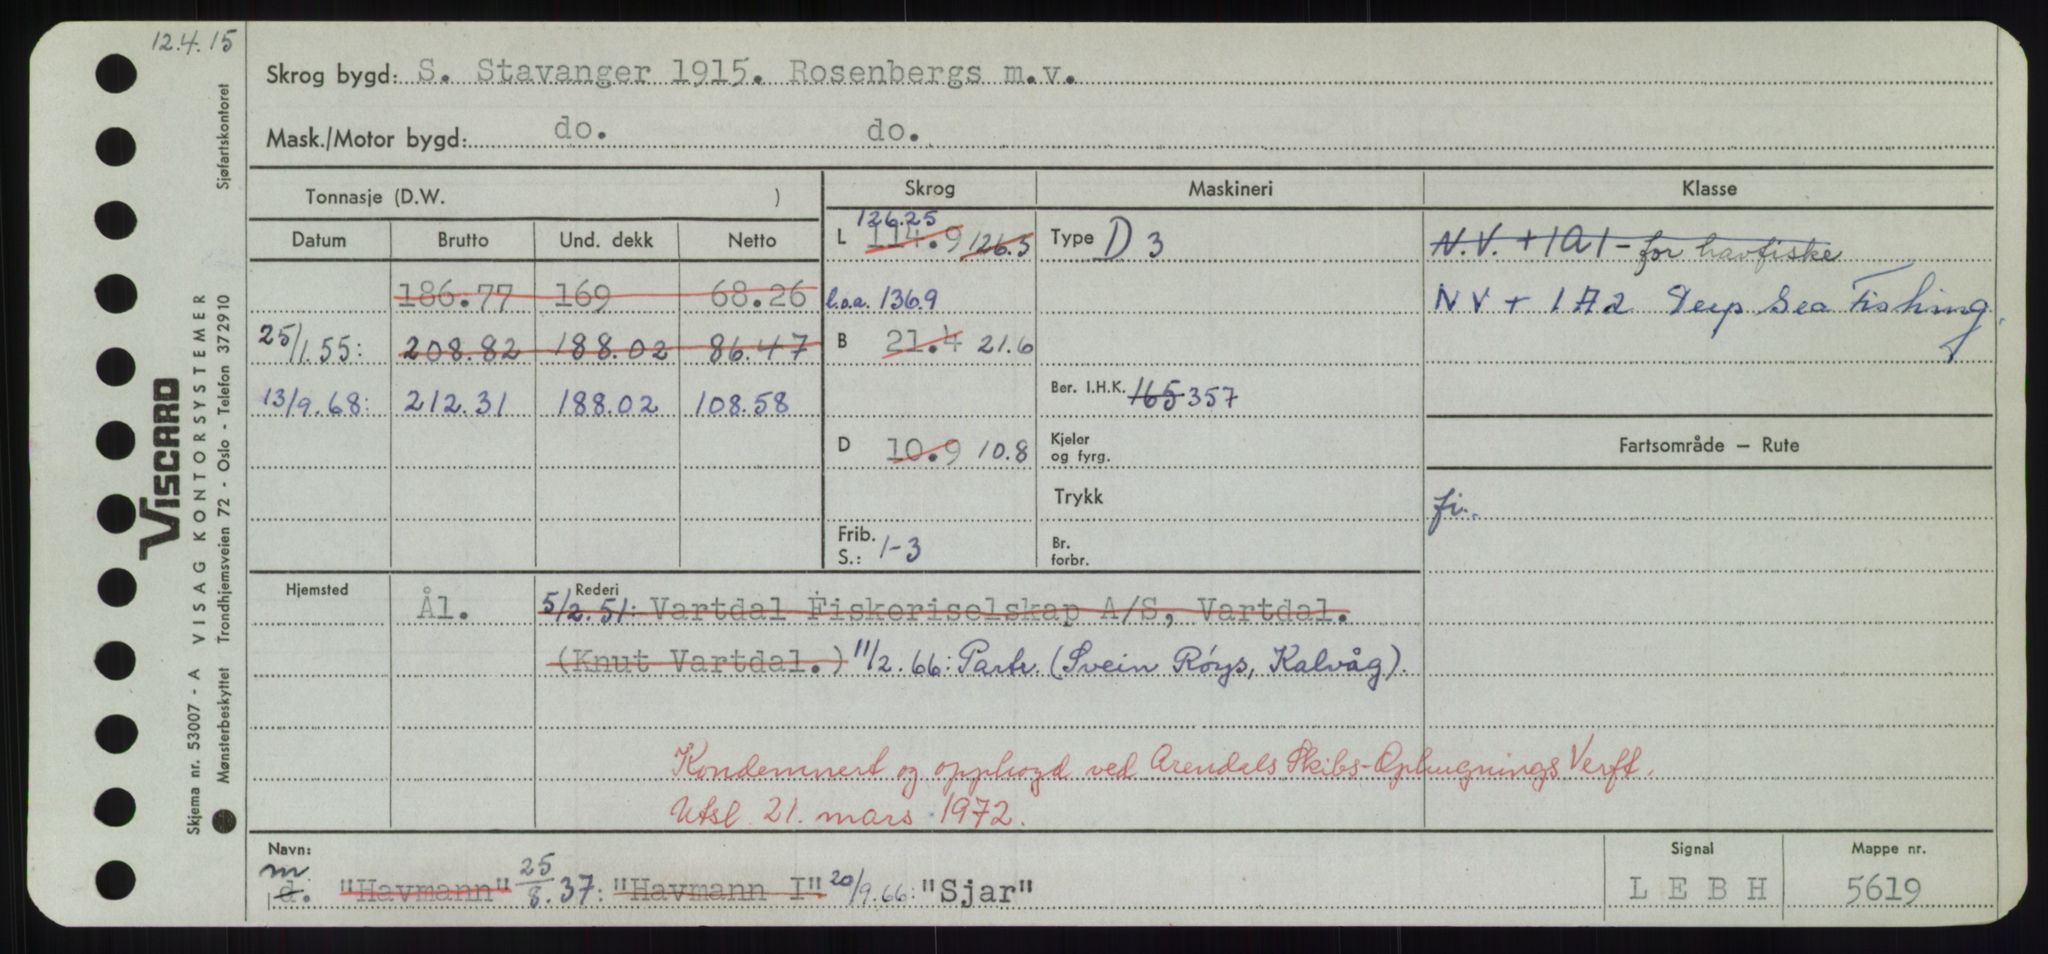 12.4.15
Skrog bygd: S. Stavanger 1915. Rosenbergs m.v.
Mask./Motor bygd: do. do.
Tonnasje (D.W. )
Skrog
Maskineri
Klasse
Datum Brutto Und. dekk Netto
186.77 169 68.26
25/1.55: 208.82 188.02 86.47
13/9.68: 212.31 188.02 108.58
126.25
L 114.9 126.5
l.o.a. 136.9
B 21.4 21.6
D 10.9 10.8
Frib.
S.: 1-3
Type D 3
Ber. I.H.K. 165 357
Kjeler
og fyrg.
Trykk
Br.
forbr.
N.V. + 1A1 - for havfiske
NV + 1A2 Deep Sea Fishing.
Fartsområde — Rute
fi.
Hjemsted Ål.
Rederi
5/2.51: Vartdal Fiskeriselskap A/S, Vartdal.
(Knut Vartdal.) 11/2.66: Partr. (Svein Röys, Kalvåg).
Kondemnert og opphogd ved Arendals Skibs-Ophugnings Verft.
Utsl 21. mars 1972.
Navn:
m
d. "Havmann" 25/8.37: "Havmann I" 20/9.66: "Sjar"
Signal
L E B H
Mappe nr.
5619
VISCARD
Skjema nr. 53007 - A VISAG KONTORSYSTEMER
Mønsterbeskyttet Trondhjemsveien 72 - Oslo - Telefon 372910 Sjøfartskontoret